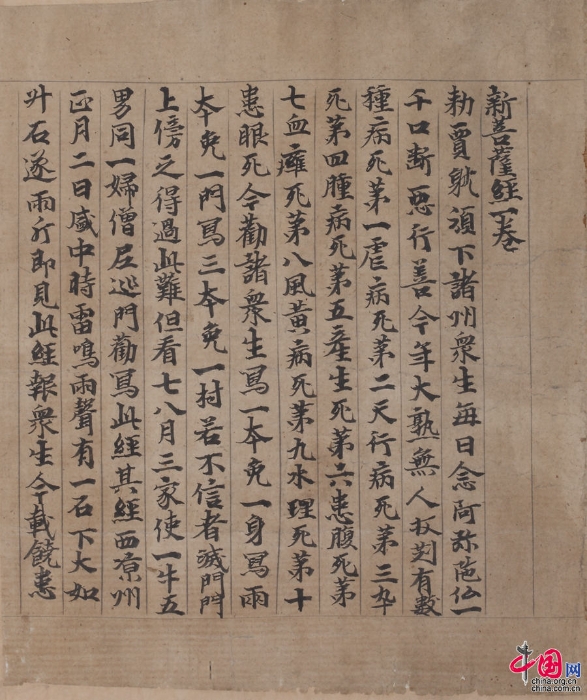 新菩薩經一卷
勑賈躭頒下諸州衆生每日念阿弥陁仏一
千口断惡行善今年大熟無人収刈有數
種病死第一虐病死第二天行病死第三卒
死第四腫病死第五産生死第六患腹死第
七血癰死第八風黃病死第九水理死第十
患眼死今勸諸衆生寫一本免一身寫兩
本免一門寫三本免一村若不信者滅門門
上傍之得過此難但看七八月三家使一牛五
男同一婦僧尼巡門勸寫此經其經西凉州
正月二日盛中時雷鳴雨聲有一石下大如
升石遂兩片即見此經報衆生今載饒患
中国网
china.org.cn
china.com.cn